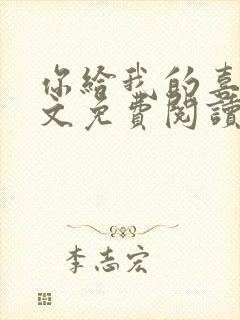 你給我的喜
文免費閱讀
李志宏